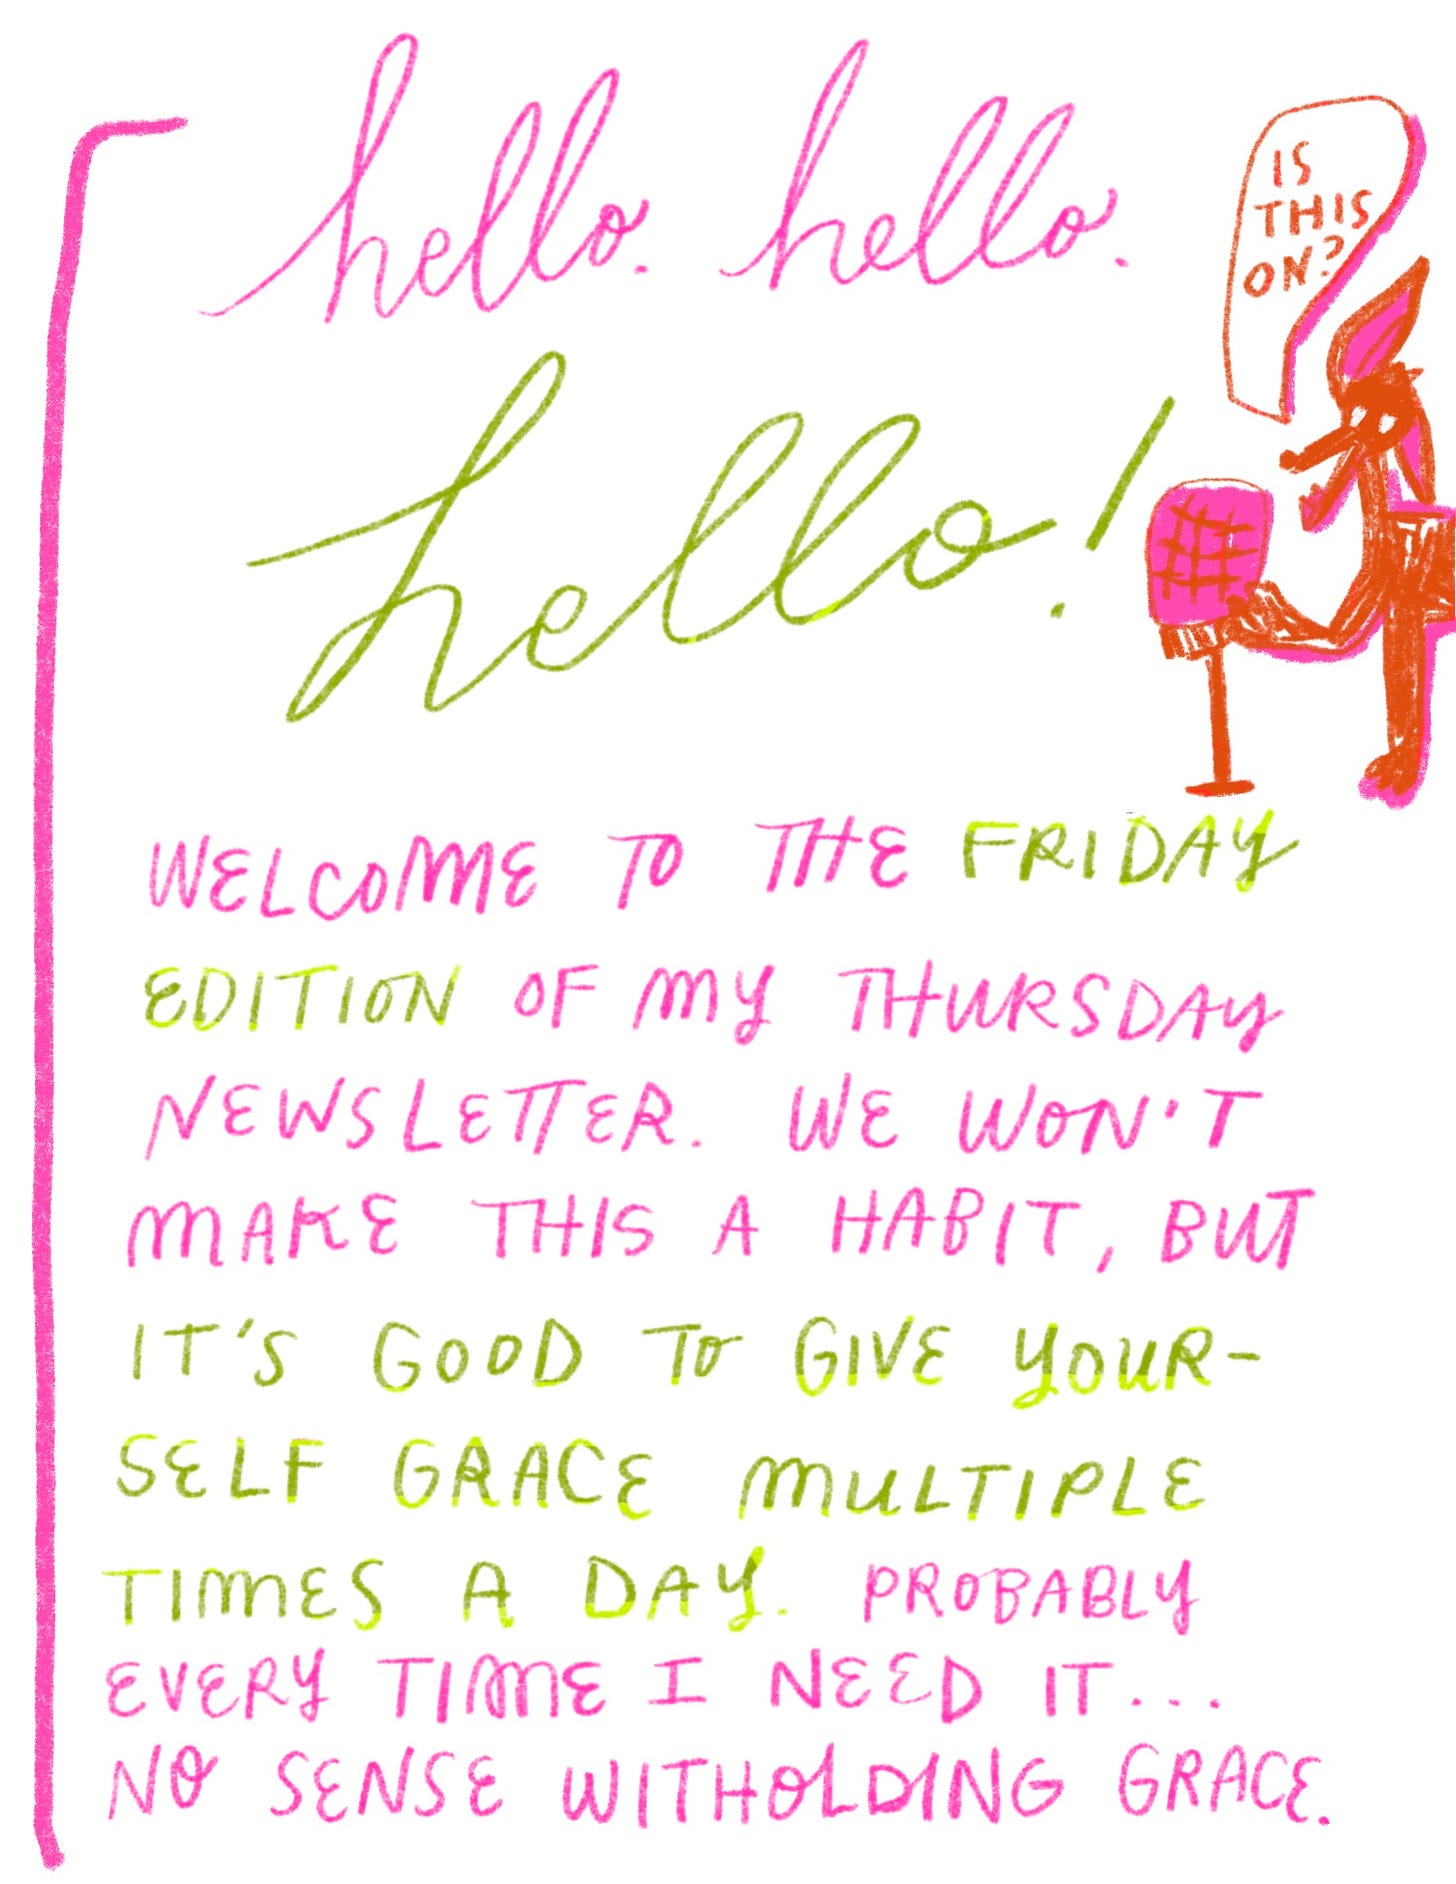 hello. hello.
IS
THIS
ON?
hello!
WELCOME TO THE FRIDAY
EDITION OF MY THURSDAY
NEWSLETTER. WE WON'T
MAKE THIS A HABIT, BUT
IT'S GOOD TO GIVE YOUR-
SELF GRACE MULTIPLE
TIMES A DAY. PROBABLY
EVERY TIME I NEED IT...
NO SENSE WITHOLDING GRACE.